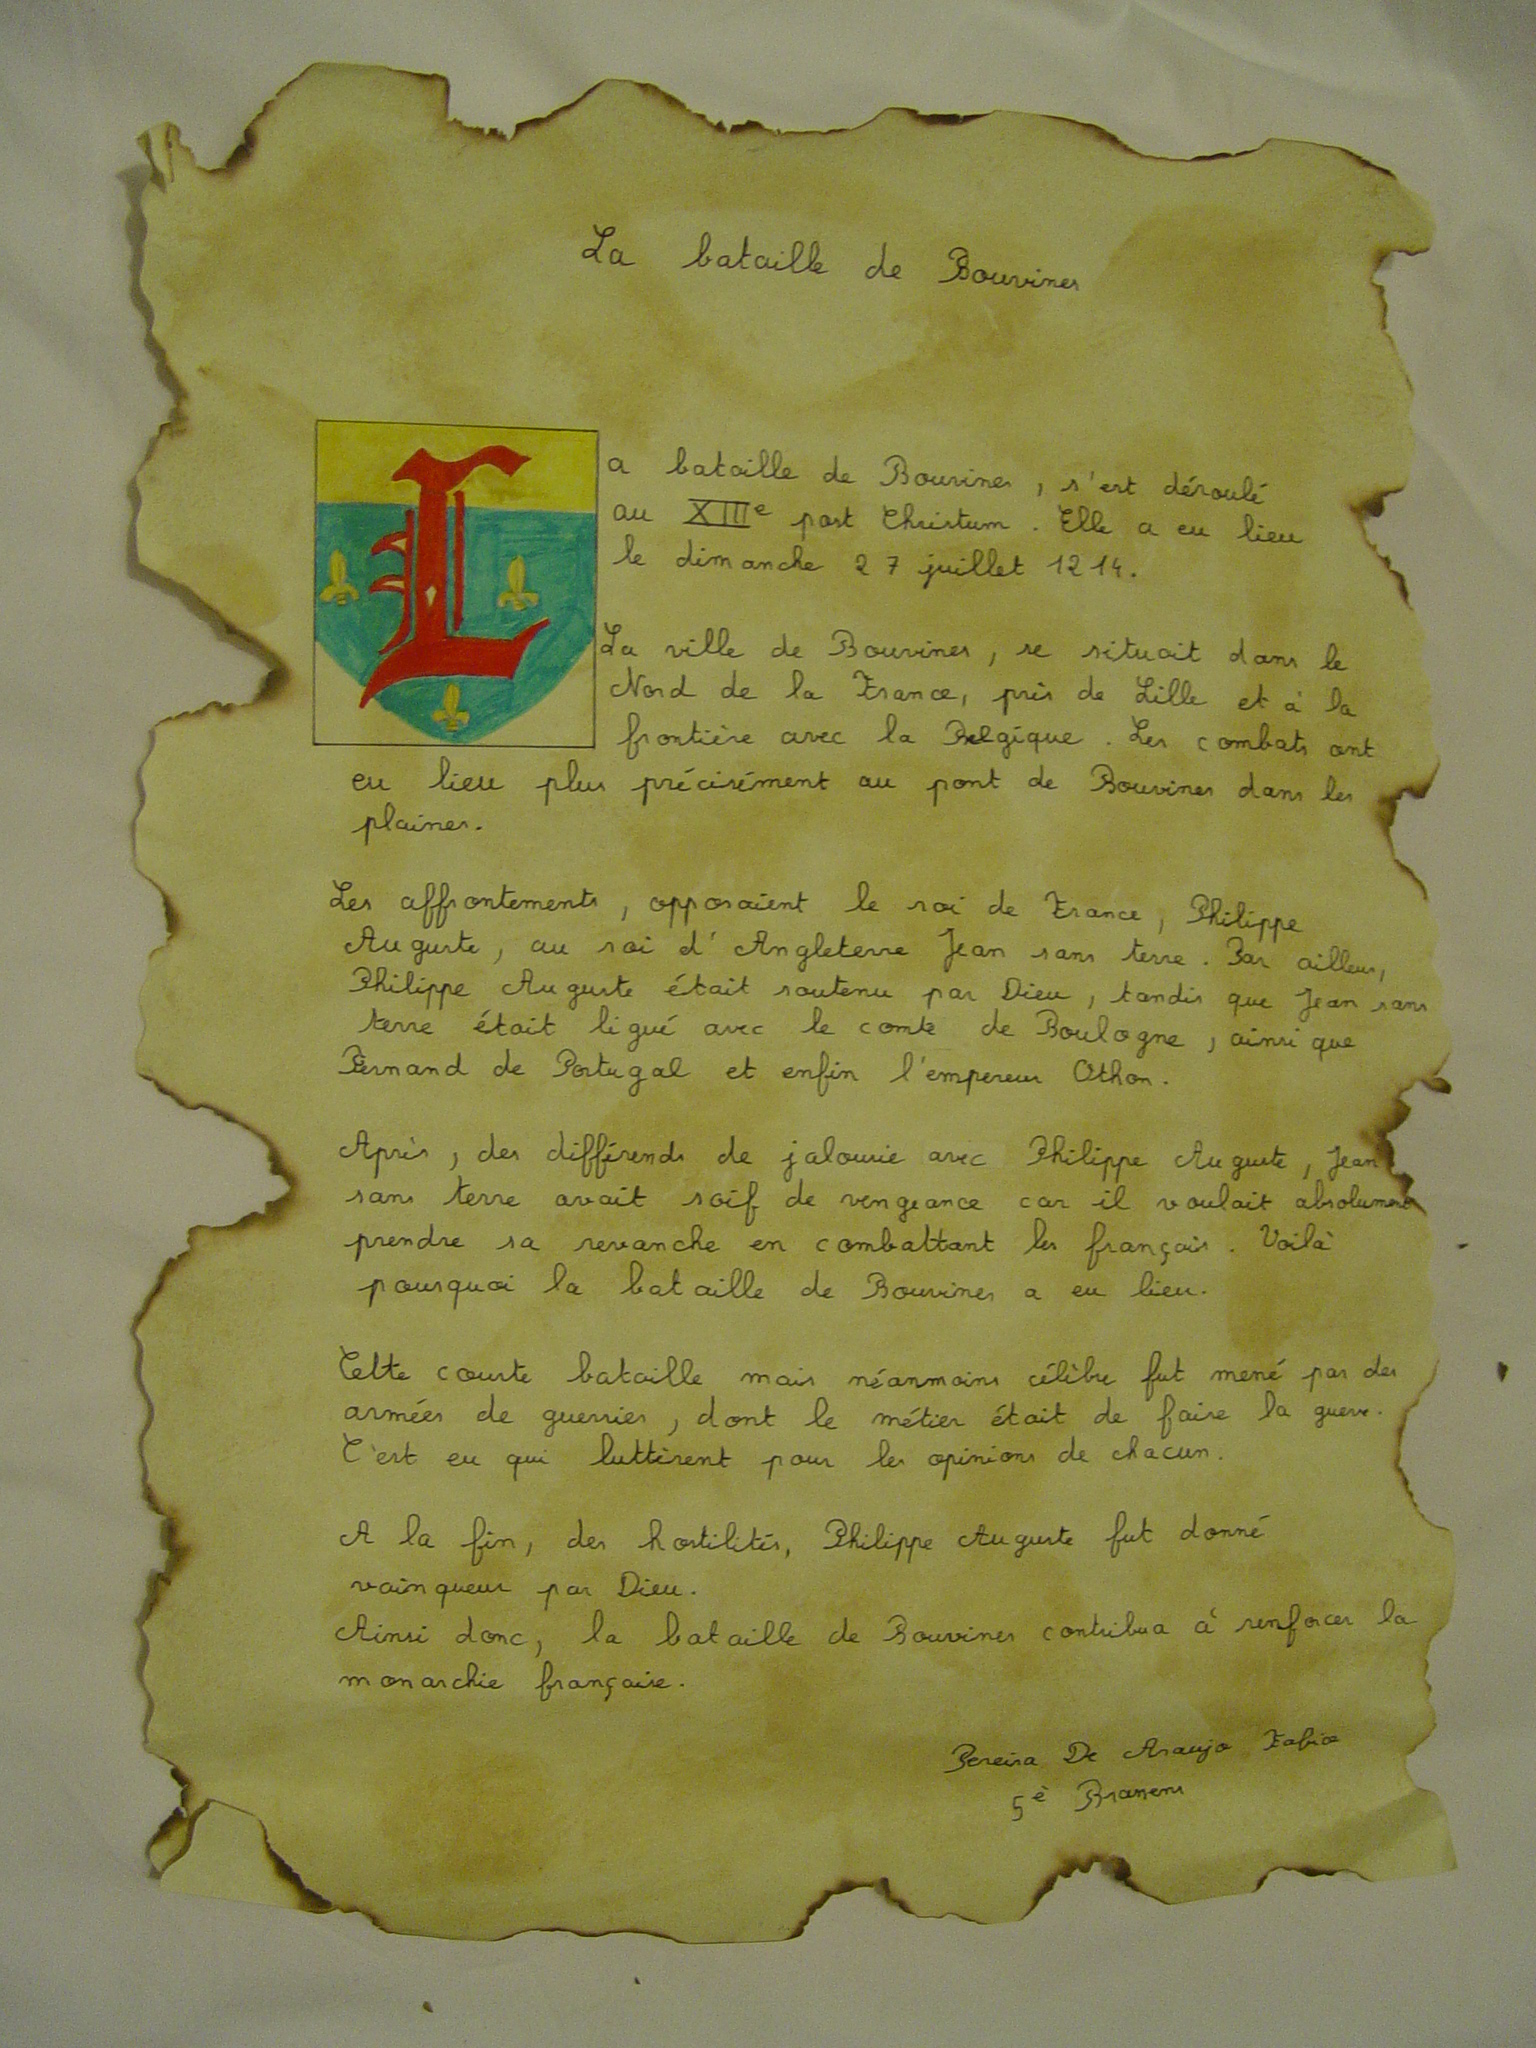 La bataille de Bouvines
La bataille de Bouvines, s'est déroulé
au XIIIe post Christum. Elle a eu lieu
le dimanche 27 juillet 1214.
La ville de Bouvines, se situait dans le
Nord de la France, près de Lille et à la
frontière avec la Belgique. Les combats ont
eu lieu plus précisément au pont de Bouvines dans les
plaines.
Les affrontements, opposaient le roi de France, Philippe
Auguste, au roi d'Angleterre Jean sans terre. Par ailleurs,
Philippe Auguste était soutenu par Dieu, tandis que Jean sans
terre était ligué avec le comte de Boulogne, ainsi que
Fernand de Portugal et enfin l'empereur Othon.
Après, des différends de jalousie avec Philippe Auguste, Jean
sans terre avait soif de vengeance car il voulait absolument
prendre sa revanche en combattant les français. Voilà
pourquoi la bataille de Bouvines a eu lieu.
Cette courte bataille mais néanmoins célèbre fut mené par des
armées de guerriers, dont le métier était de faire la guerre.
C'est eu qui luttèrent pour les opinions de chacun.
A la fin, des hostilités, Philippe Auguste fut donné
vainqueur par Dieu.
Ainsi donc, la bataille de Bouvines contribua à renforcer la
monarchie française.
Pereira De Araujo Fabio
5è Brassens